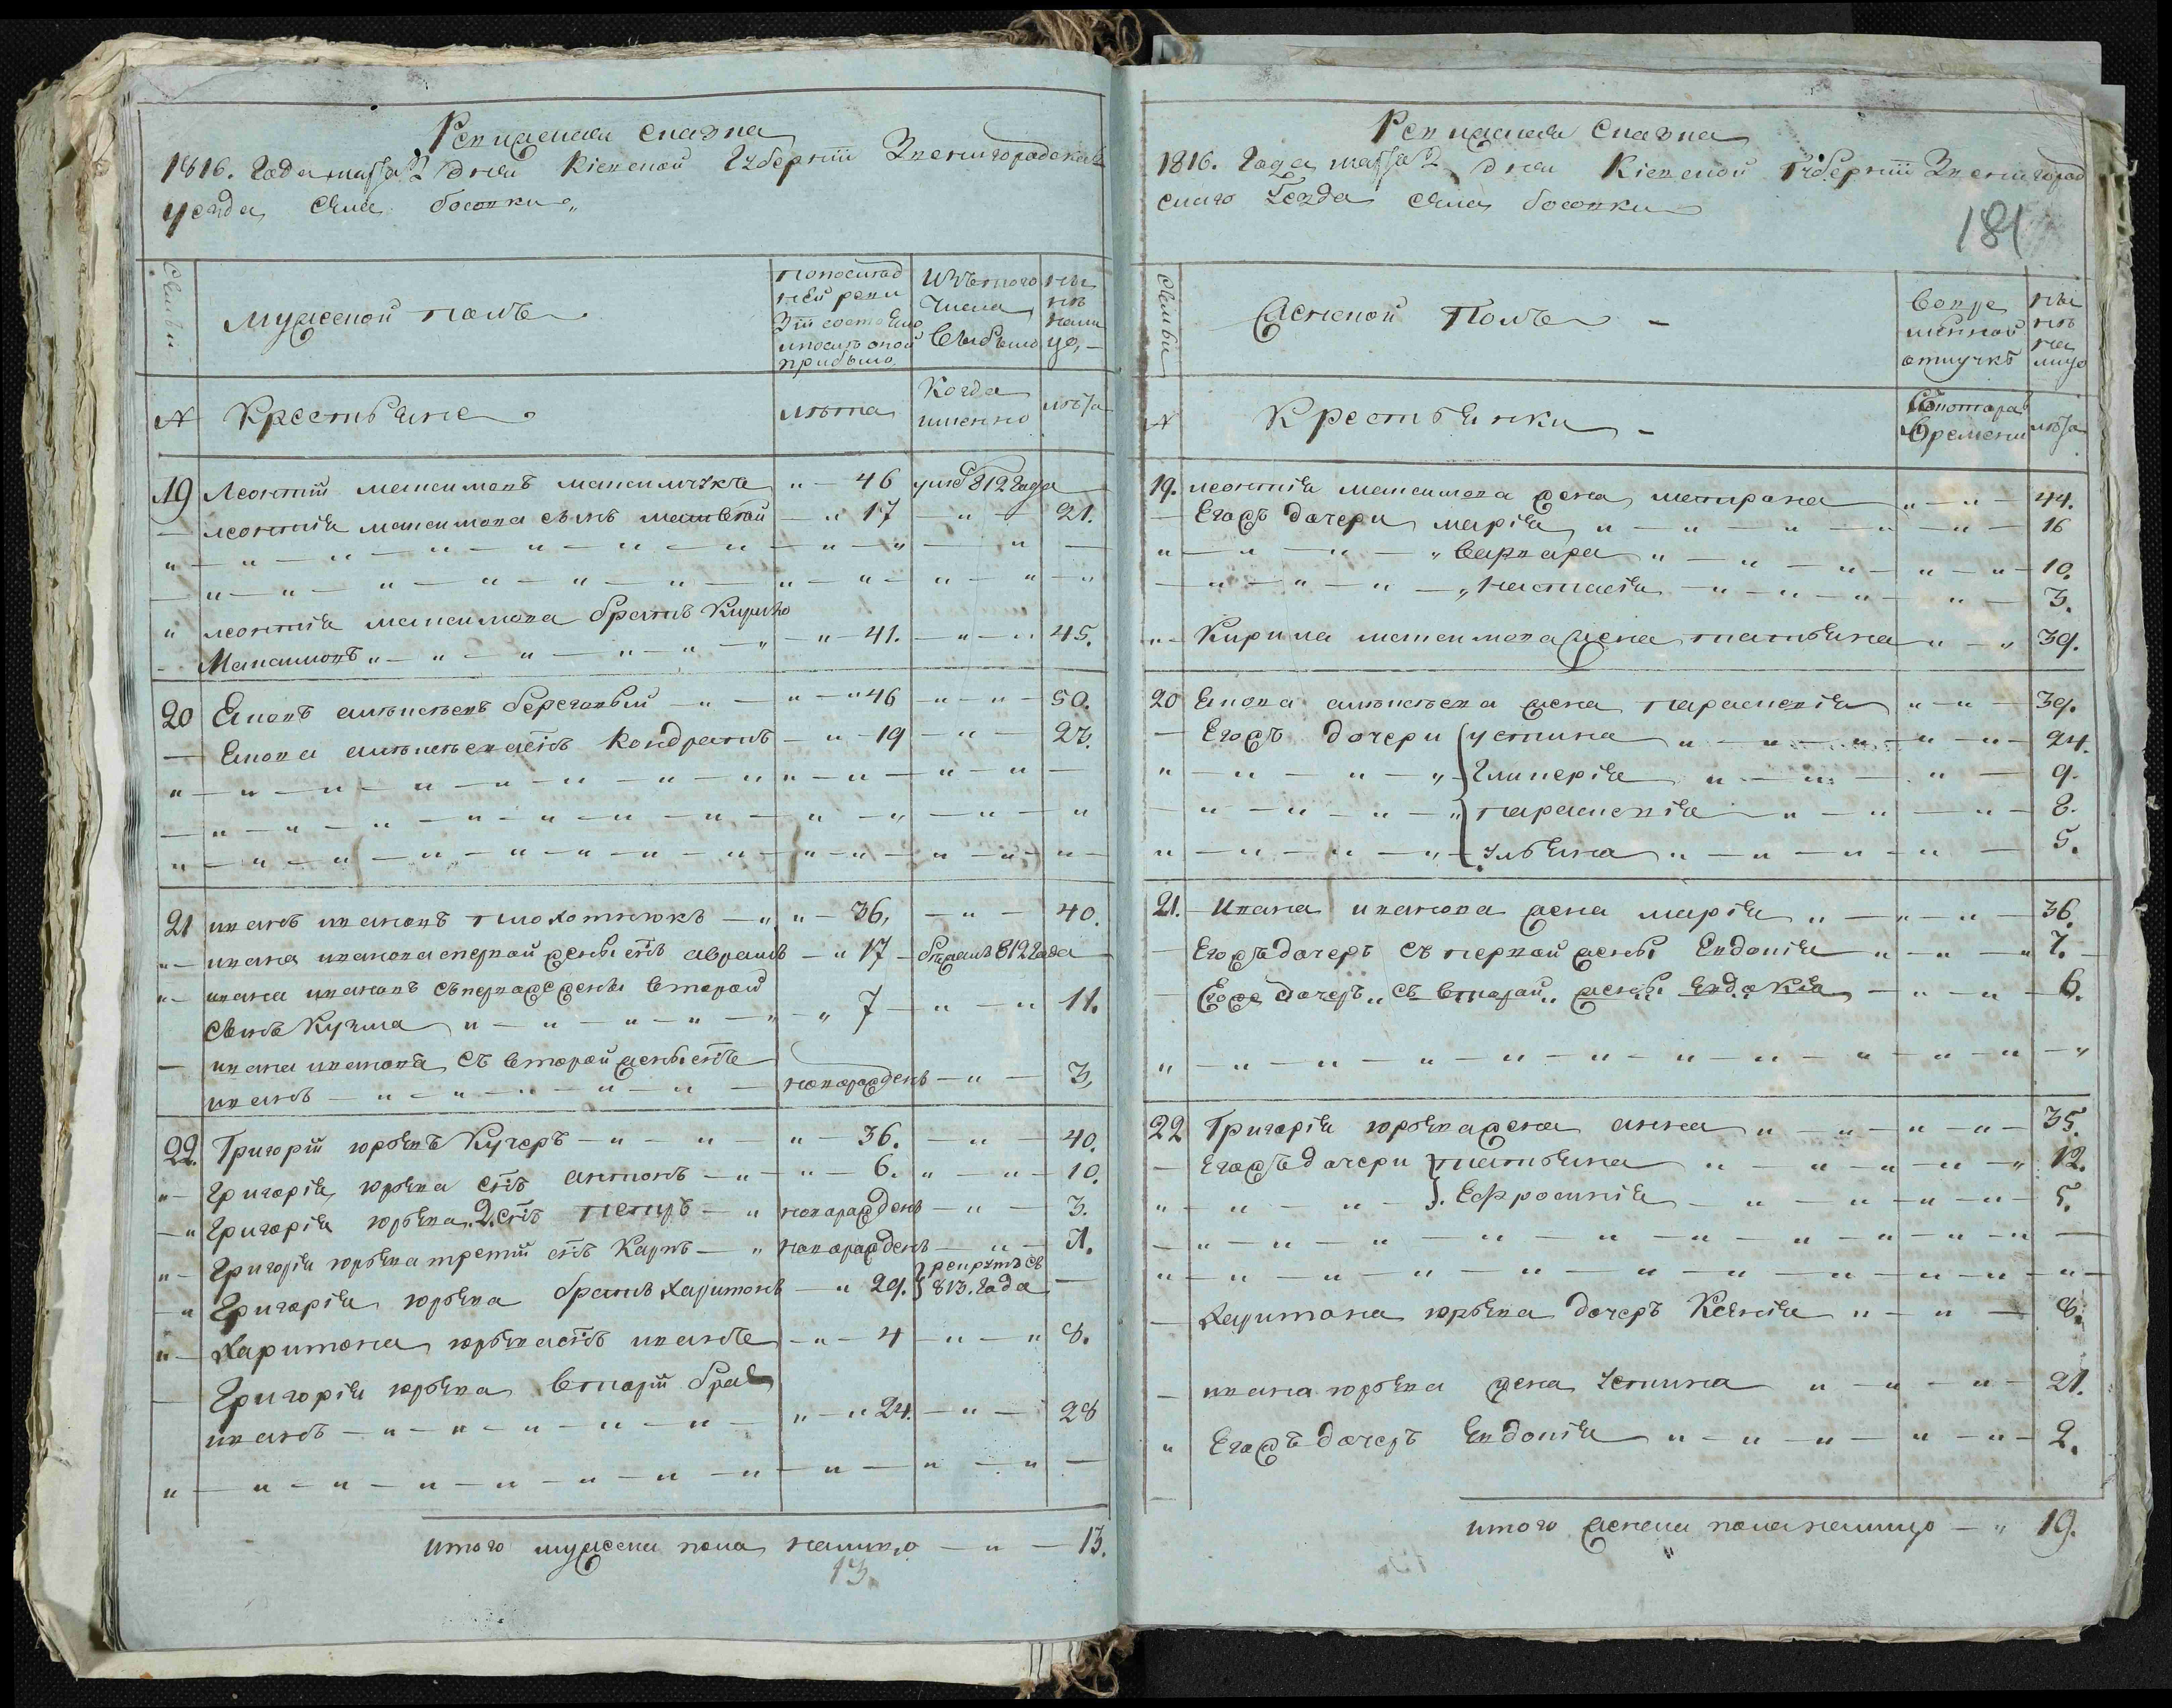 Ревизская сказка
1816. Года марта 2 дня Кіевской Губерніи Звенигородскаго
уезда села босовки „
Семьи
Мужеской полъ
попослед
ней реви
зіи состояло
ипосле оной
прибыло
Изътого
Числа
Выбыло
ны
не
нали
цо, —
№ Крестьяне
лета
Когда
именно
лета
19 леонтій максимовъ максимчукъ „ — 46 умре 812 года
— леонтія максимова сынъ матвей — „ 17 — „ — 21.
„ леонтія максимова братъ Кирило
Максимовъ „ — „ — „ — „ — „ — „ 41. — „ — „ 45.
20 Яковъ алексеевъ береговый — „ — „ — „ 46 — „ — „ — 50.
— Якова алексеева снъ Кондратъ — „ — 19 — „ — 23.
21 иванъ ивановъ плохотнюкъ — „ „ — 36, — „ — 40.
„ — ивана иванова спервой жены снъ абрамъ — „ 17 — бежалъ 812 года
„ — ивана ивановъ съпервое жены второй
сынъ Кузма „ — „ — „ — „ — „ — „ 7 — „ — „ 11.
— ивана иванова съ второй жены снъ
иванъ — „ — „ — „ — „ — „ — новорожденъ — „ — 3,
22. Григорій юрьевъ Кучеръ — „ — „ — „ — 36. — „ — 40.
„ — Григорія юрьева снъ антонъ — „ — „ — 6. „ — „ — 10.
— „ Григорія юрьева 2. снъ петръ — „ новорожденъ — „ — 3.
„ — Григорія юрьева третій снъ Карпъ — „ новорожденъ — „ — 1.
— „ Григорія юрьева братъ харитонъ — „ 29. рекрутъ съ
813. года —
„ — харитона юрьева снъ иванъ — „ — 4 — „ — „ 8.
— Григорія юрьева вторій бра
иванъ — „ — „ — „ — „ — „ — „ — „ 24. — „ — 28
итого мужска пола налицо — „ — 13.
13.
Ревизская Сказка
1816. Года марта 2 дня Кіевской Губерніи Звенигород
скаго уезда села босовки
181
Семьи
Женской Полъ —
Вовре
менной
отлучке
ны
не
на
лицо
№ Крестьянки —
Скотораго
Времени
лета
19. леонтія максимова жена матрона „ — „ — 44.
— Егожъ дочери марія „ — „ — „ — „ — „ — 16
„ — „ — „ — „ варвара „ — „ — „ — „ — „ — 10.
— „ — „ — „ — „ настасія — „ — „ — „ — „ — 3.
„ — Кирила максимова жена татьяна „ — „ 39.
20 Якова алексеева жена параскевія „ — „ — 39.
— Егожъ дочери устина „ — „ — „ — „ — „ — 24.
„ — „ — „ — „ Гликерія „ — „ — „ — 9.
— „ — „ — „ — „ параскевія — „ — „ — „ — 8.
„ — „ — „ — „ — ульяна „ — „ — „ — „ — 5.
21. — Ивана иванова жена марія „ — „ — „ — 36.
— Егожъ дочеръ съ первой жены Евдокія — „ — „ — „ 7. —
— Егоже дочеръ „ съ второй „ жены Евдокія — „ — „ — 6.
22 Григорія юрьева жена анна „ — „ — „ — „ — 35.
— Егожъ дочери татьяна „ — „ — „ — „ — „ 12.
„ — „ — „ — Ефросинія — „ — „ — „ — „ — 5.
— Харитона юрьева дочеръ Ксенія „ — „ — 8.
— ивана юрьева жена устина „ — „ — „ — 21.
„ Егожъ дочеръ Евдокія „ — „ — „ — „ — „ — 2.
итого женска пола налицо — „ 19.